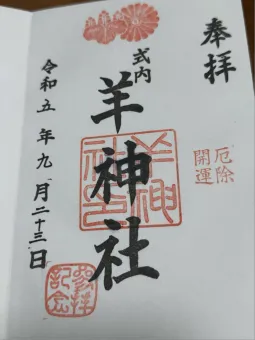 奉拝
厄除
開運
式内
羊神社
羊神社印
令和五年九月二十三日
参拝記念